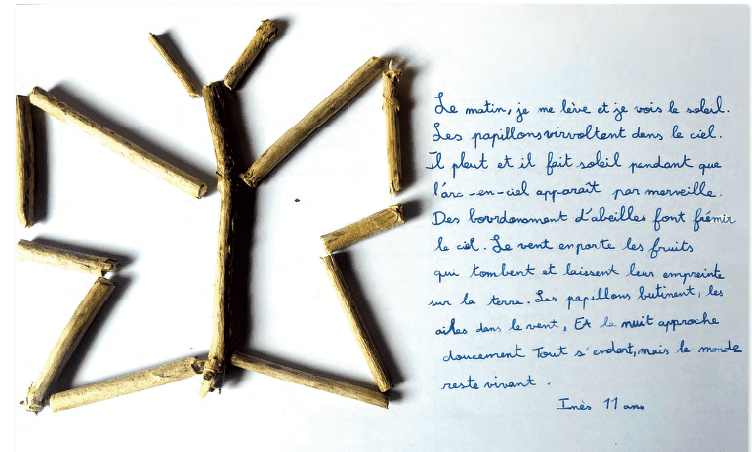 Le matin, je me lève et je vois le soleil.
Les papillons virvoltent dans le ciel.
Il pleut et il fait soleil pendant que
l'arc-en-ciel apparaît par merveille.
Des bourdonement d'abeilles font frémir
le ciel. Le vent emporte les fruits
qui tombent et laissent leur empreinte
sur la terre. Les papillons butinent, les
ailes dans le vent, Et la nuit approche
doucement Tout s'endort, mais le monde
reste vivant.
Inès 11 ans